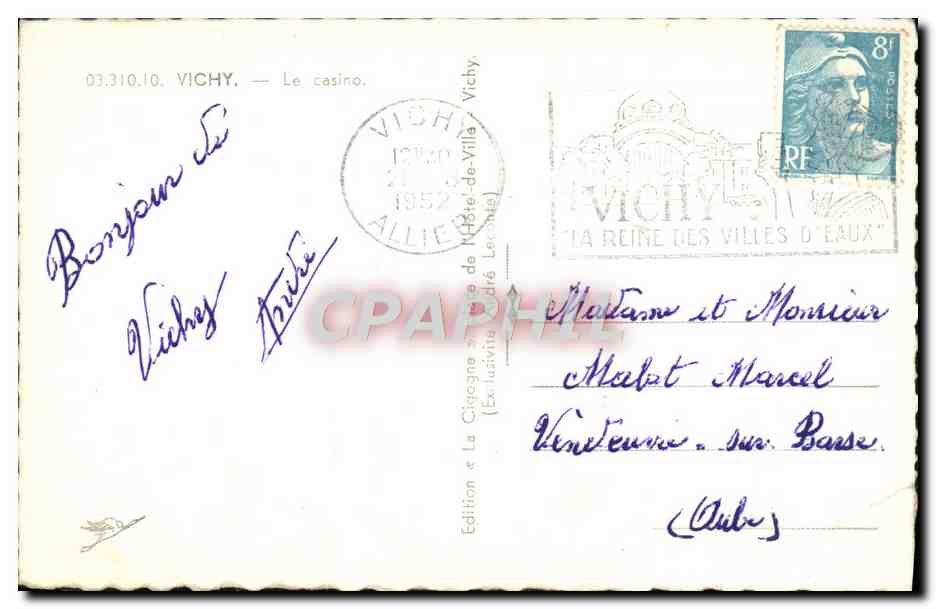 03.310.10. VICHY. — Le casino.
Bonjour de
Vichy
André
Edition « La Cigogne » de l'Hôtel-de-Ville Vichy.
(Exclusivité André Leconte)
VICHY
1952
ALLIER
VICHY
"LA REINE DES VILLES D'EAUX"
8F
POSTES
RF
CPAPHIL
Madame et Monsieur
Malat Marcel
Vendeuvre-sur Barse
(Aube)